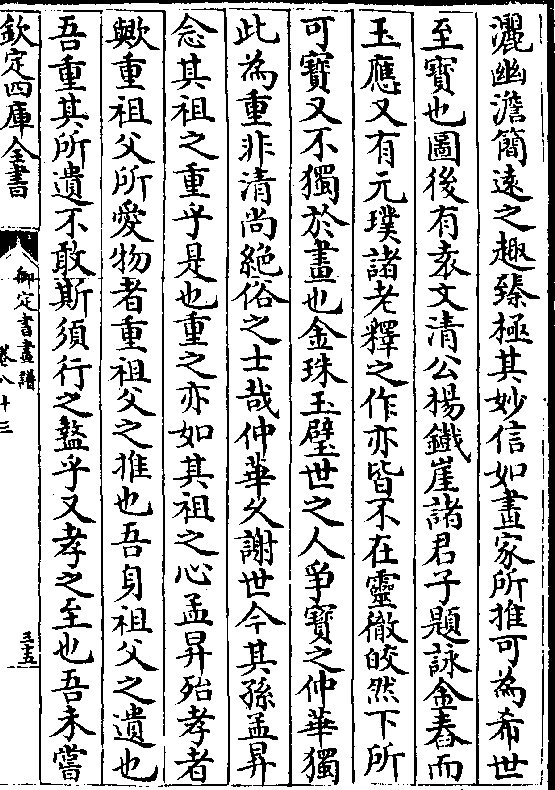 灑幽澹簡遠之趣臻極其妙信如畫家所推可為希世
至寶也圖後有袁文清公楊鐵崖諸君子題詠金舂而
玉應又有元璞諸老釋之作亦皆不在靈徹皎然下所
可寶又不獨於畫也金珠玉璧世之人爭寶之仲華獨
此為重非清尚絶俗之士哉仲華久謝世今其孫孟昇
念其祖之重乎是也重之亦如其祖之心孟昇殆孝者
歟重祖父所愛物者重祖父之推也吾身祖父之遺也
吾重其所遺不敢斯須行之盭乎又孝之至也吾未嘗
欽定四庫全書
御定書畫譜
卷八十三
三五